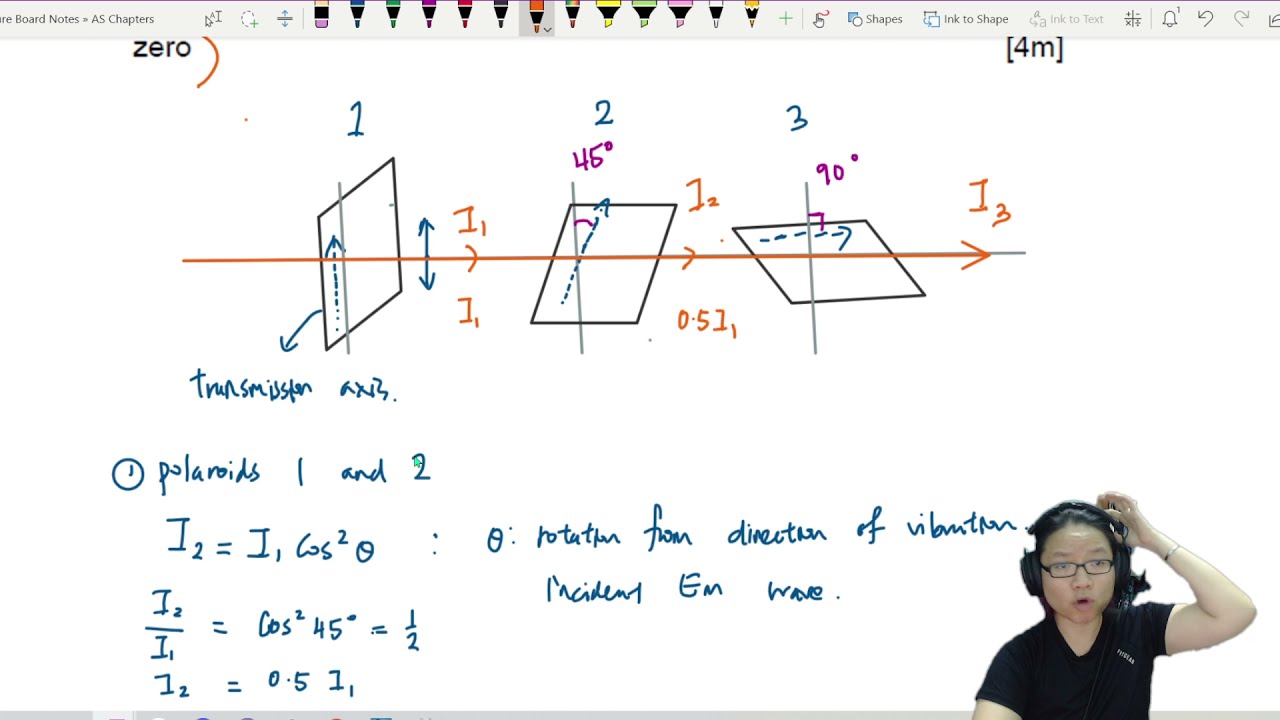 ure Board Notes » AS Chapters
Shapes
Ink to Shape
Ink to Text
zero
[4m]
1
2
3
45°
90°
I₁
I₂
I₃
I₁
0.5I₁
transmission axis.
① polaroids 1 and 2
I₂ = I₁ cos² θ : θ: rotation from direction of vibration.
incident Em wave.
I₂/I₁ = cos² 45° = 1/2
I₂ = 0.5 I₁